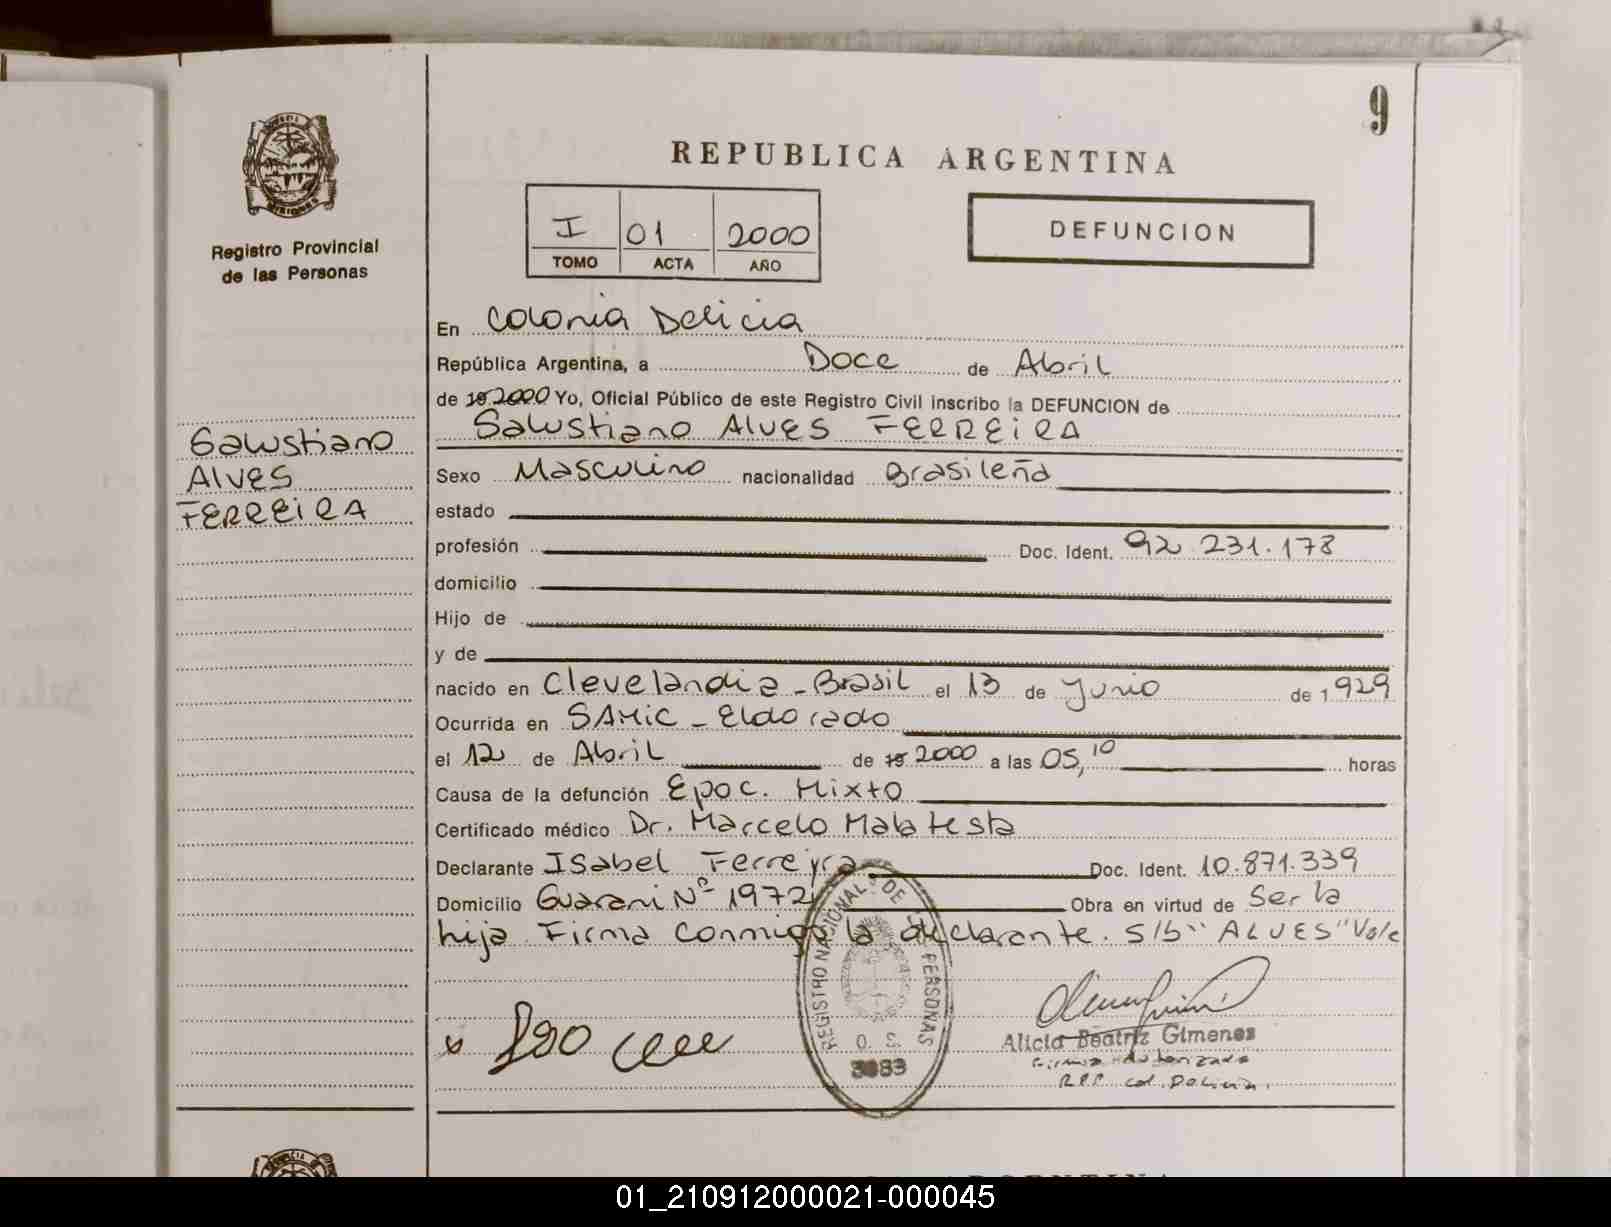 9
REPUBLICA ARGENTINA
MISIONES
Registro Provincial
de las Personas
I 01 2000
TOMO ACTA AÑO
DEFUNCION
En Colonia Delicia
República Argentina, a Doce de Abril
de 19 2000 Yo, Oficial Público de este Registro Civil inscribo la DEFUNCION de
Salustiano ALVES FERREIRA
Salustiano
ALVES
FERREIRA
Sexo Masculino nacionalidad Brasileña
estado
profesión Doc. Ident. 92.231.178
domicilio
Hijo de
y de
nacido en Clevelandia - Brasil el 13 de Junio de 1929
Ocurrida en SAMIC - Eldorado
el 12 de Abril de 19 2000 a las 05,10 horas
Causa de la defunción Epoc. Mixto
Certificado médico Dr. Marcelo Malatesta
Declarante Isabel Ferreyra Doc. Ident. 10.871.339
Domicilio Guarani Nº 1972 Obra en virtud de Ser la
hija. Firma conmigo la declarante. S/b "ALVES" Vale
REGISTRO NACIONAL DE PERSONAS
O. S.
3083
Alicia Beatriz Gimenez
Firma Autorizada
R.P.P. Col. Delicia.
ARGENTINA
01_210912000021-000045